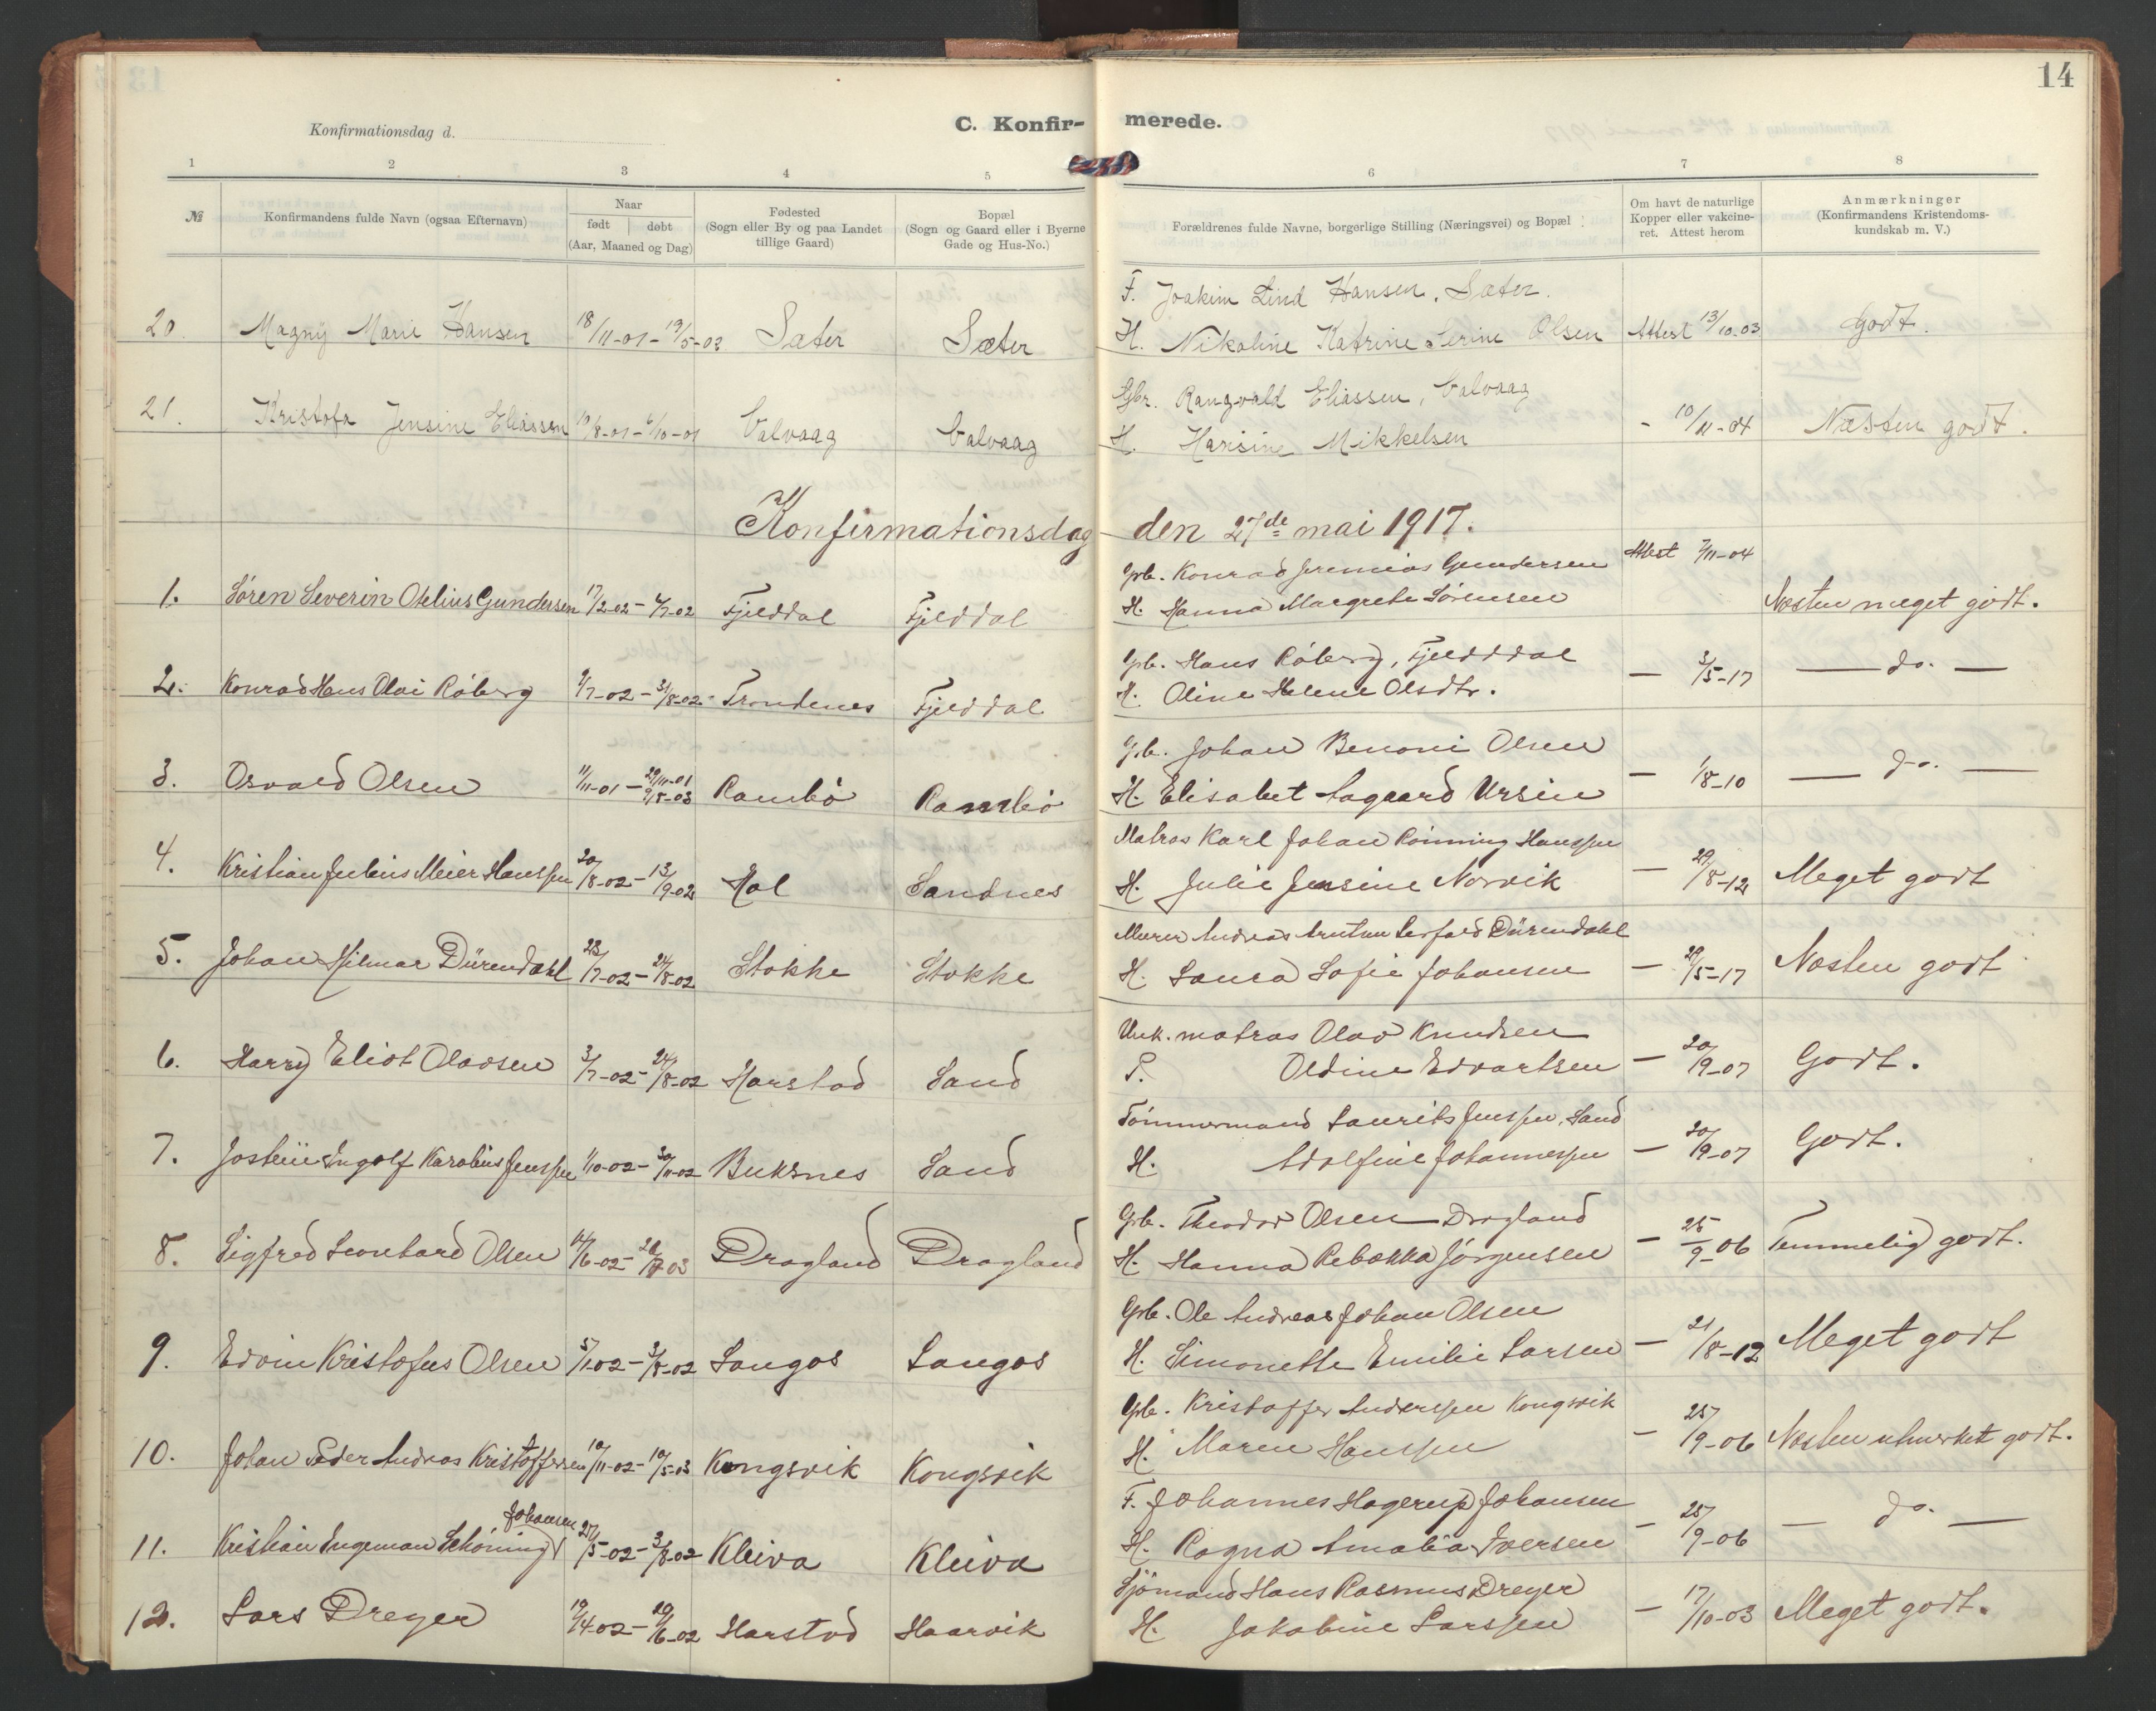 14
Konfirmationsdag d.
C. Konfir-
merede.
1 2 3 4 5 6 7 8
№ Konfirmandens fulde Navn (ogsaa Efternavn) Naar født døbt (Aar, Maaned og Dag) Fødested (Sogn eller By og paa Landet tillige Gaard) Bopæl (Sogn og Gaard eller i Byerne Gade og Hus-No.) Forældrenes fulde Navne, borgerlige Stilling (Næringsvei) og Bopæl Om havt de naturlige Kopper eller vakcineret. Attest herom Anmærkninger (Konfirmandens Kristendomskundskab m. V.)
F. Joakim Lind Hansen, Sæter.
20. Magny Marie Hansen 18/11-01 - 19/5-02 Sæter Sæter H. Nikoline Katrine Serine Olsen Attest 13/10-03 Godt.
Gbr. Rangvald Eliassen, Valvaag
21. Kristofa Jensine Eliassen 10/8-01 - 6/10-01 Valvaag Valvaag H. Hansine Mikkelsen - 10/11-04 Næsten godt.
Konfirmationsdag den 27de mai 1917.
Grb. Konrad Jeremias Gundersen Attest 7/11-04
1. Søren Severin Otelius Gundersen 17/2-02 - 6/7-02 Fjelddal Fjelddal H. Hanna Margrete Sørensen Næsten meget godt.
Grb. Hans Råberg, Fjelddal
2. Konrad Hans Olai Råberg 9/7-02 - 31/8-02 Trondenes Fjelddal H. Oline Helene Olsdtr. - 3/5-17 - do. -
Grb. Johan Benoni Olsen
3. Osvald Olsen 11/11-01 - 29/11-01 9/8-03 Rambø Rambø H. Elisabet Aagaard Ursin - 1/8-10 - do. -
Matros Karl Johan Rønning Hanssen
4. Kristian Julius Meier Hanssen 20/8-02 - 13/9-02 Hol Sandnes H. Julie Jensine Norvik - 29/8-12 Meget godt
Murer Andreas Arntsen Dürendahl
5. Johan Hilmar Dürendahl 23/7-02 - 24/8-02 Stokke Stokke H. Laura Sofie Johansen - 29/5-17 Næsten godt
Unk. matros Olav Knudsen
6. Harry Eliot Olavsen 3/7-02 - 24/8-02 Harstad Sand P. Oldine Edvartsen - 20/9-07 Godt.
Tømmermand Laurits Jenssen, Sand
7. Jostein Ingolf Karolius Jenssen 1/10-02 - 30/11-02 Buksnes Sand H. Adolfine Johannessen - 20/9-07 Godt.
Grb. Theodor Olsen Dragland
8. Sigfred Leonhard Olsen 14/6-02 - Dragland Dragland H. Hanna Rebekka Jørgensen - 25/9-06 Temmelig godt.
Grb. Ole Andreas Johan Olsen
9. Edvin Kristofus Olsen 5/1-02 - 3/8-02 Sangos Sangos H. Simonette Emilie Larsen - 21/8-12 Meget godt
Grb. Kristoffer Anderssen Kongsvik
10. Johan Peder Andreas Kristoffersen 10/11-02 - 10/5-03 Kongsvik Kongsvik H. Maren Hanssen - 25/9-06 Næsten utmerket godt.
F. Johannes Hagerup Johansen
11. Kristian Ingeman Schöning Johansen 27/5-02 - 3/8-02 Kleiva Kleiva H. Ragna Amalia Iversen - 25/9-06 - do. -
Sjömand Hans Rasmus Dreyer
12. Lars Dreyer 19/4-02 - 29/6-02 Harstad Haarvik H. Jakobine Larssen - 17/10-03 Meget godt.